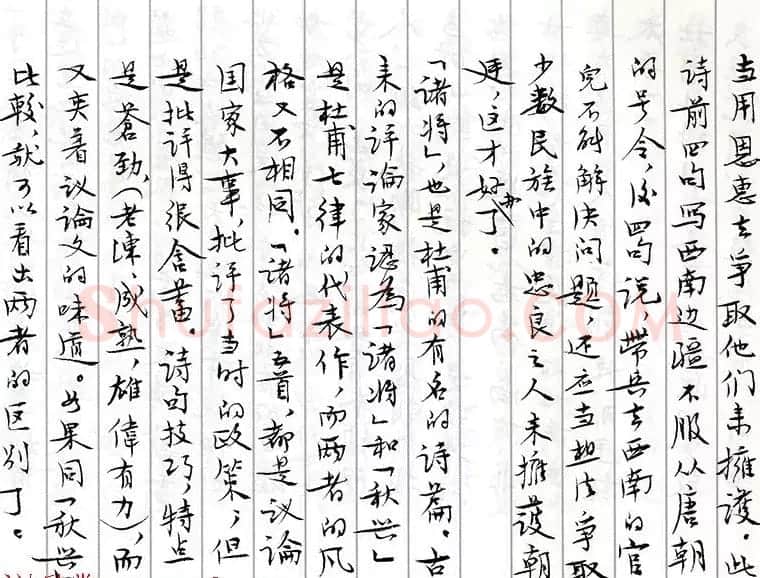 当用恩惠去争取他们来擁護。此
诗前四句写西南边疆不服从唐朝
的号令,后四句说,带兵去西南的官
究不能解决问题,还应当想法争取
少数民族中的忠良之人来擁護朝
廷,这才好办了。
「诸将」,也是杜甫的有名的诗篇。古
来的评论家認為「诸将」和「秋兴」
是杜甫七律的代表作,而两者的风
格又不相同。「诸将」五首,都是议论
国家大事,批评了当时的政策,但
是批评得很含蓄。诗句技巧,特点
是蒼勁,(老陳,成熟,雄偉有力),而
又夹着议论文的味道。如果同「秋兴
比較,就可以看出两者的区别了。
Shufaziliao.COM